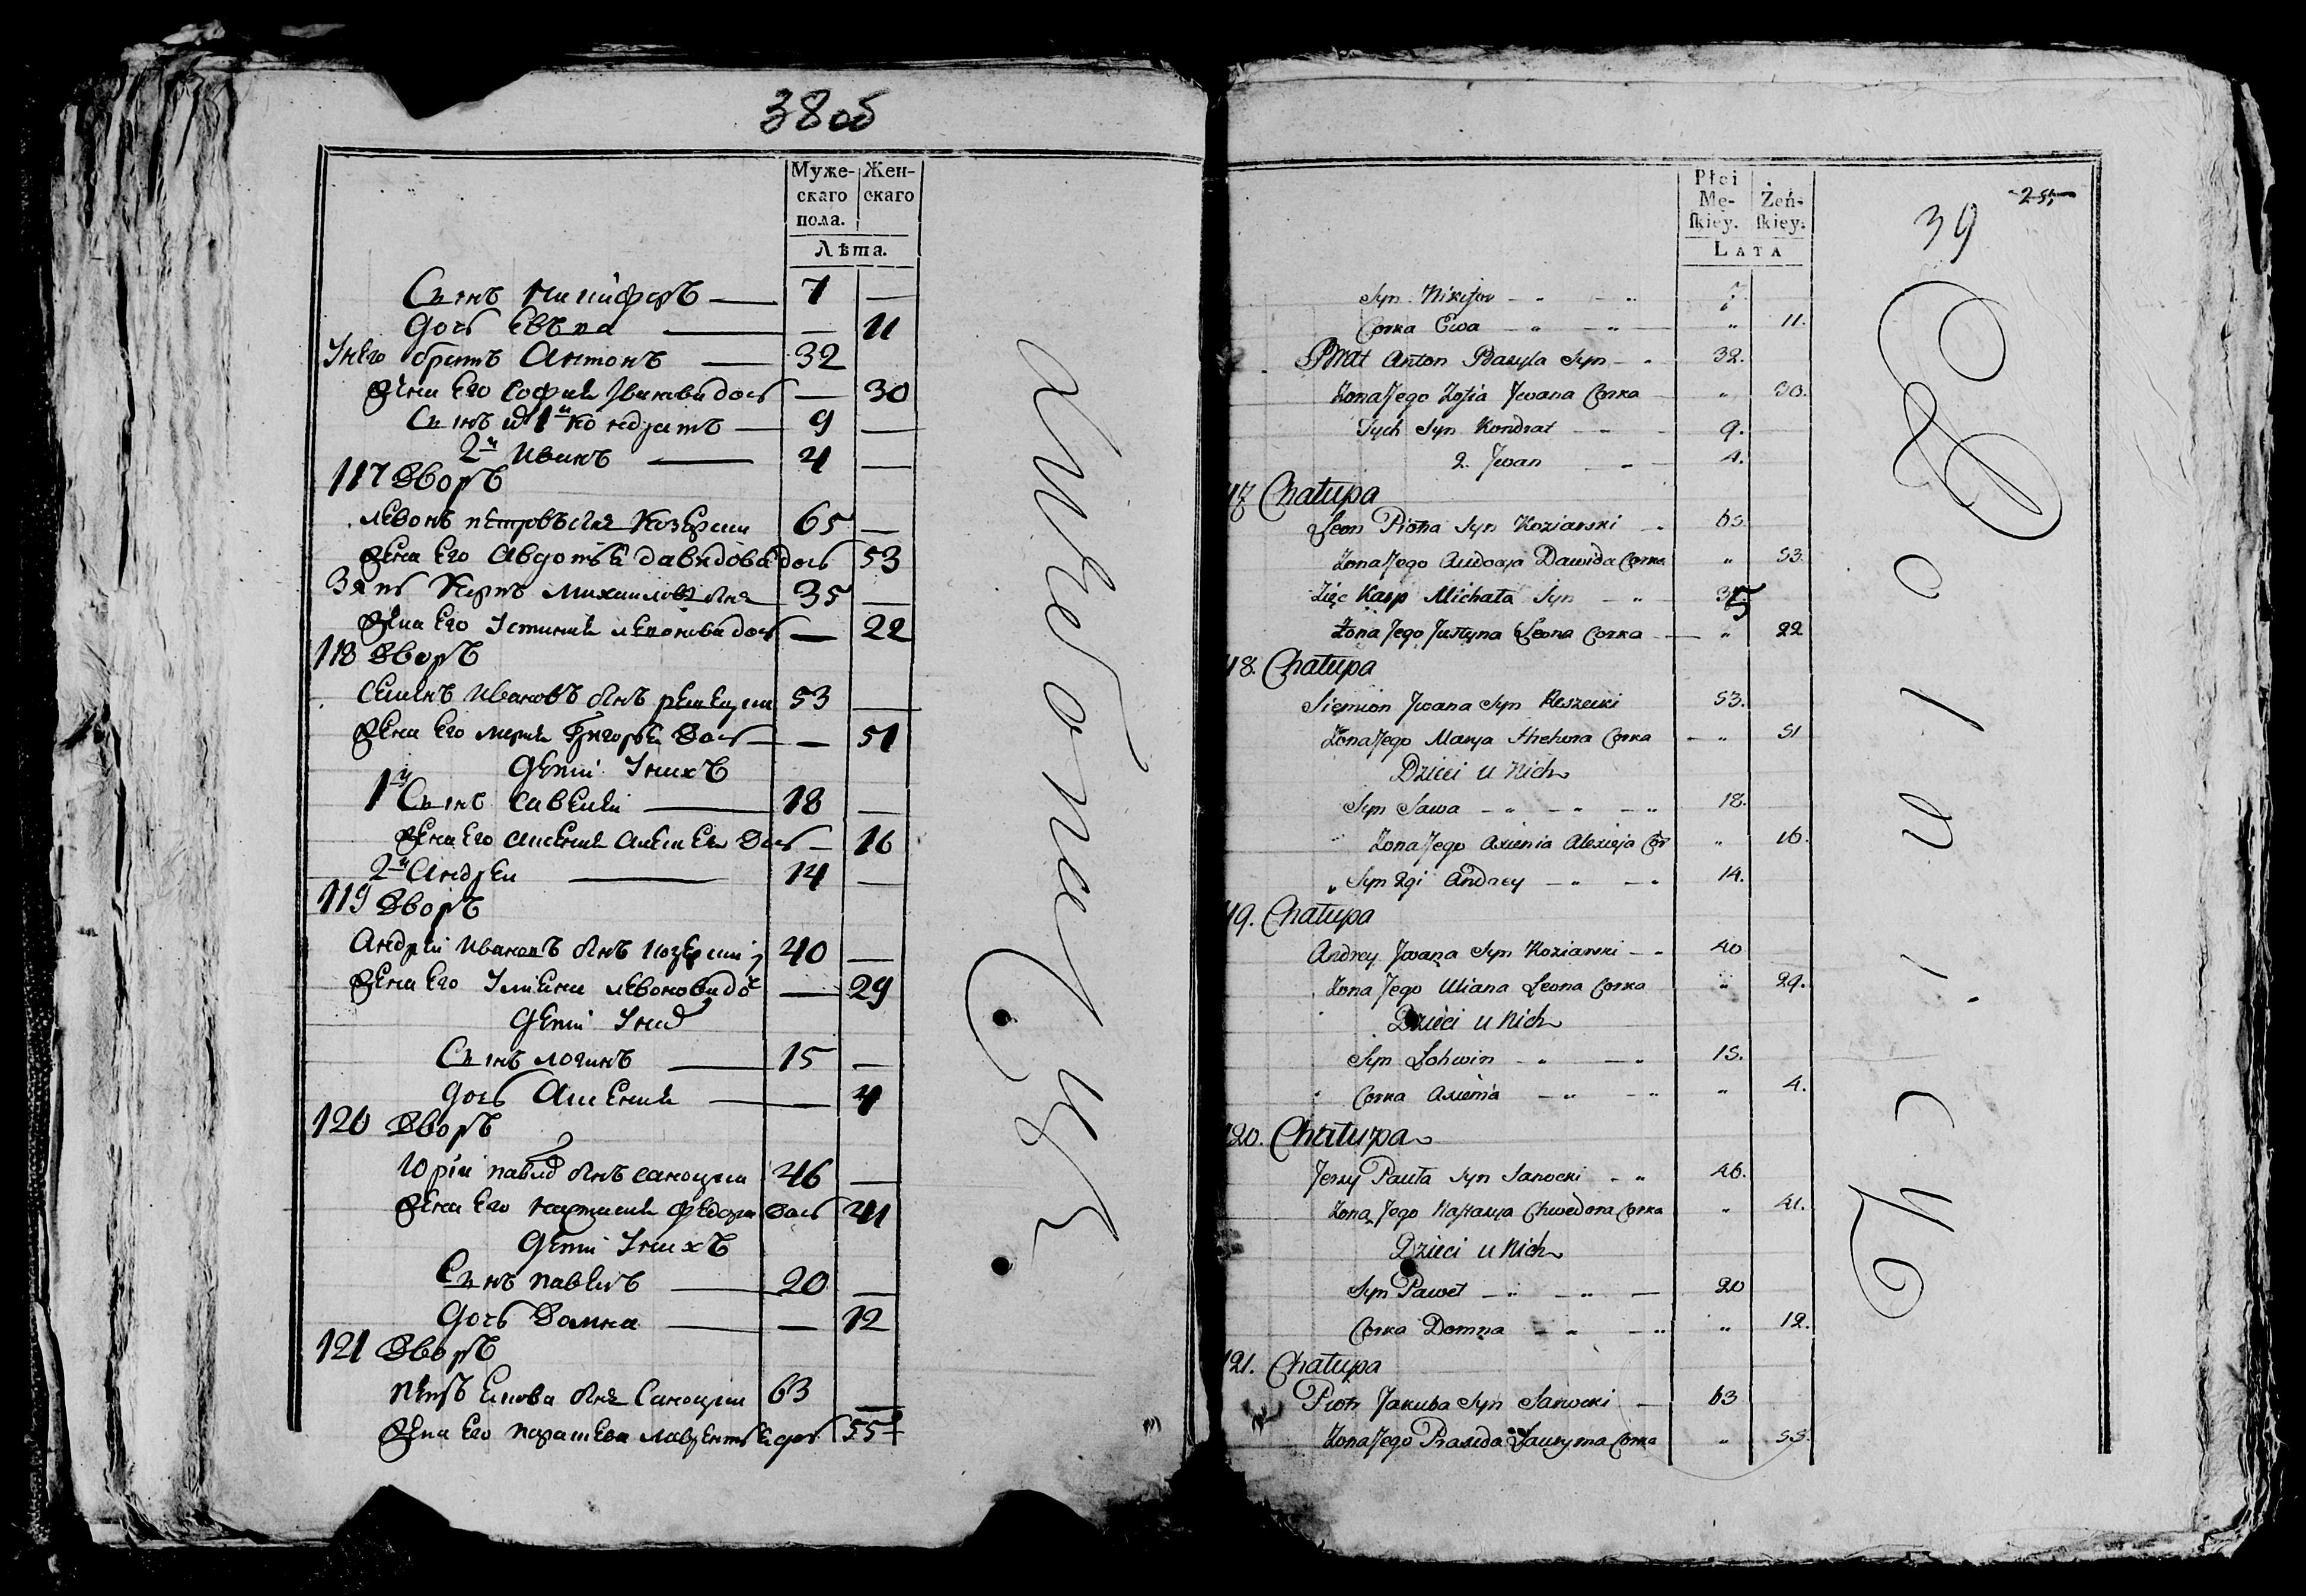 38 об
Муже-
скаго
пола.
Жен-
скаго
Лѣта.
Сынъ Никифоръ 7
дочь Евва 11
Унего братъ Антонъ 32
жена Его София Иванова дочь 30
Сынъ 1й Кондратъ 9
2й Иванъ 4
117 Дворъ
Левонъ Петровъ Козерски 65
жена Его Авдотья давидова дочь 53
Зять Карпъ Михаиловъ 35
жена Его Устиния Левонова дочь 22
118 Дворъ
Семенъ Ивановъ Решецки 53
жена Его Мария Григорья дочь 51
дети Унихъ
1й Сынъ Савелий 18
жена Его дочь 16
2й Андрей 14
119 Дворъ
Андрей Ивановъ 40
жена Его Улияна Левонова доч 29
дети Унихъ
Сынъ логинъ 15
дочь Аксения 4
120 Дворъ
Юрий Саноцки 46
жена Его Настасия Федора дочь 41
дети Унихъ
Сынъ Павелъ 20
дочь Домна 12
121 Дворъ
Петръ Саноцки 63
жена Его дочь 55
Płci
Mę-
skiey.
Żeń-
skiey.
LATA
39
25
Syn Nikifor
Corka Ewa 11.
Brat Anton Bazyla Syn 32.
Zona Jego Zofia Jwana Corka 30.
Tych Syn Kondrat 9.
2. Jwan 4.
117 Chałupa
Leon Piotra Syn Koziarski 65.
Zona Jego Awdocya Dawida Corka 53.
Zięc Karp Michała Syn 35
Zona Jego Justyna Leona Corka 22
118. Chałupa
Siemion Jwana Syn Reszecki 53.
Zona Jego Marya Hrehora Corka 51
Dzieci u Nich
Syn Sawa 18.
Zona Jego Axienia Alexieja Cor 16.
Syn 2gi Andrey 14.
119. Chałupa
Andrey Jwana Syn Koziarski 40
Zona Jego Uliana Leona Corka 29.
Dzieci u Nich
Syn Lohwin 15.
Corka Axienia 4.
120. Chałupa
Jerzy Pawła Syn Sanocki 46.
Zona Jego Nastazya Chwedora Corka 41.
Dzieci u Nich
Syn Paweł 20
Corka Domna 12.
121. Chałupa
Piotr Jakuba Syn Sanocki 63
Zona Jego Corka 55.